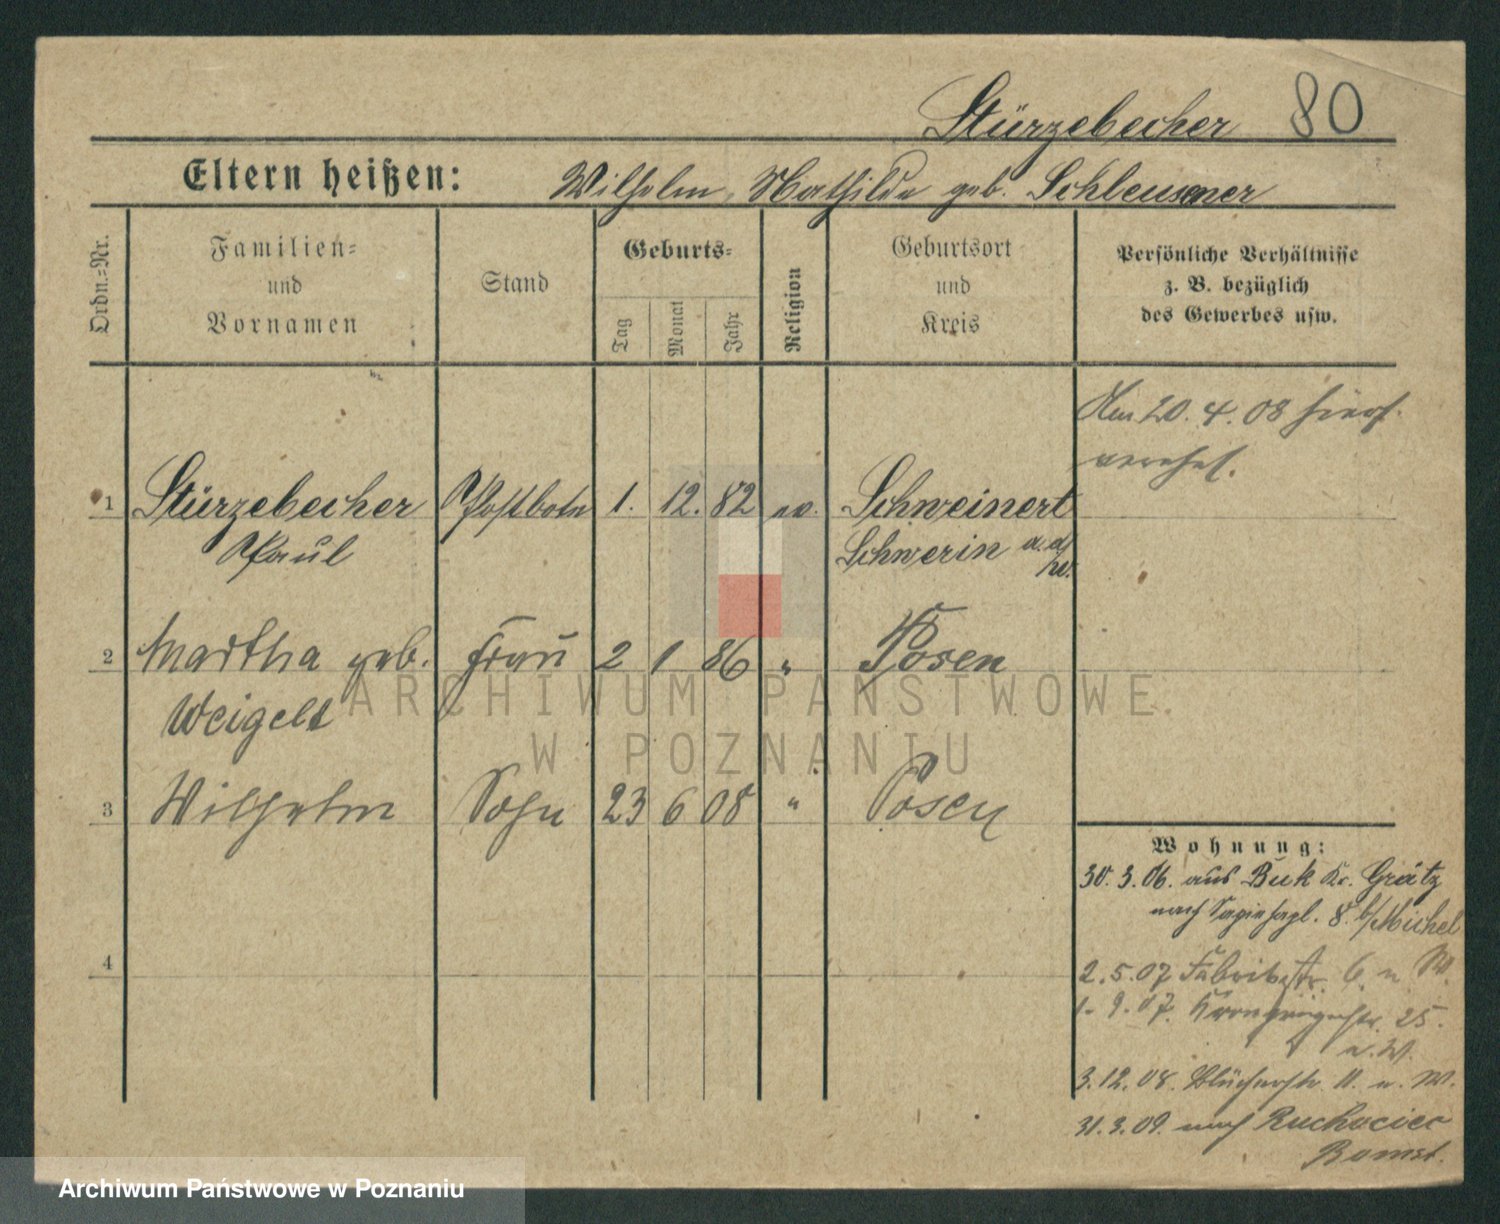 Stürzebecher 80
Eltern heißen: Wilhelm, Mathilde geb. Schleusener
Ordn.=Nr.
Familien=
und
Vornamen
Stand
Geburts=
Tag
Monat
Jahr
Religion
Geburtsort
und
Kreis
Persönliche Verhältnisse
z. B. bezüglich
des Gewerbes usw.
Am 20. 4. 08 hiers.
verehel.
1 Stürzebecher Postbote 1. 12. 82 ev. Schweinert
Paul Schwerin a. d.
W.
2 Martha geb. Frau 2 1 86 " Posen
Weigelt
3 Wilhelm Sohn 23 6 08 " Posen
4
Wohnung:
30. 3. 06. aus Buk Kr. Grätz
nach 8. b/Michel
2. 5. 07 Fabrikstr. 6. u. W.
1. 9. 07. Kronprinzenstr. 25.
u. W.
3. 12. 08. Blücherstr. 11. u. W.
31. 3. 09. nach Ruchocice
Bomst.
ARCHIWUM PAŃSTWOWE
W POZNANIU
Archiwum Państwowe w Poznaniu